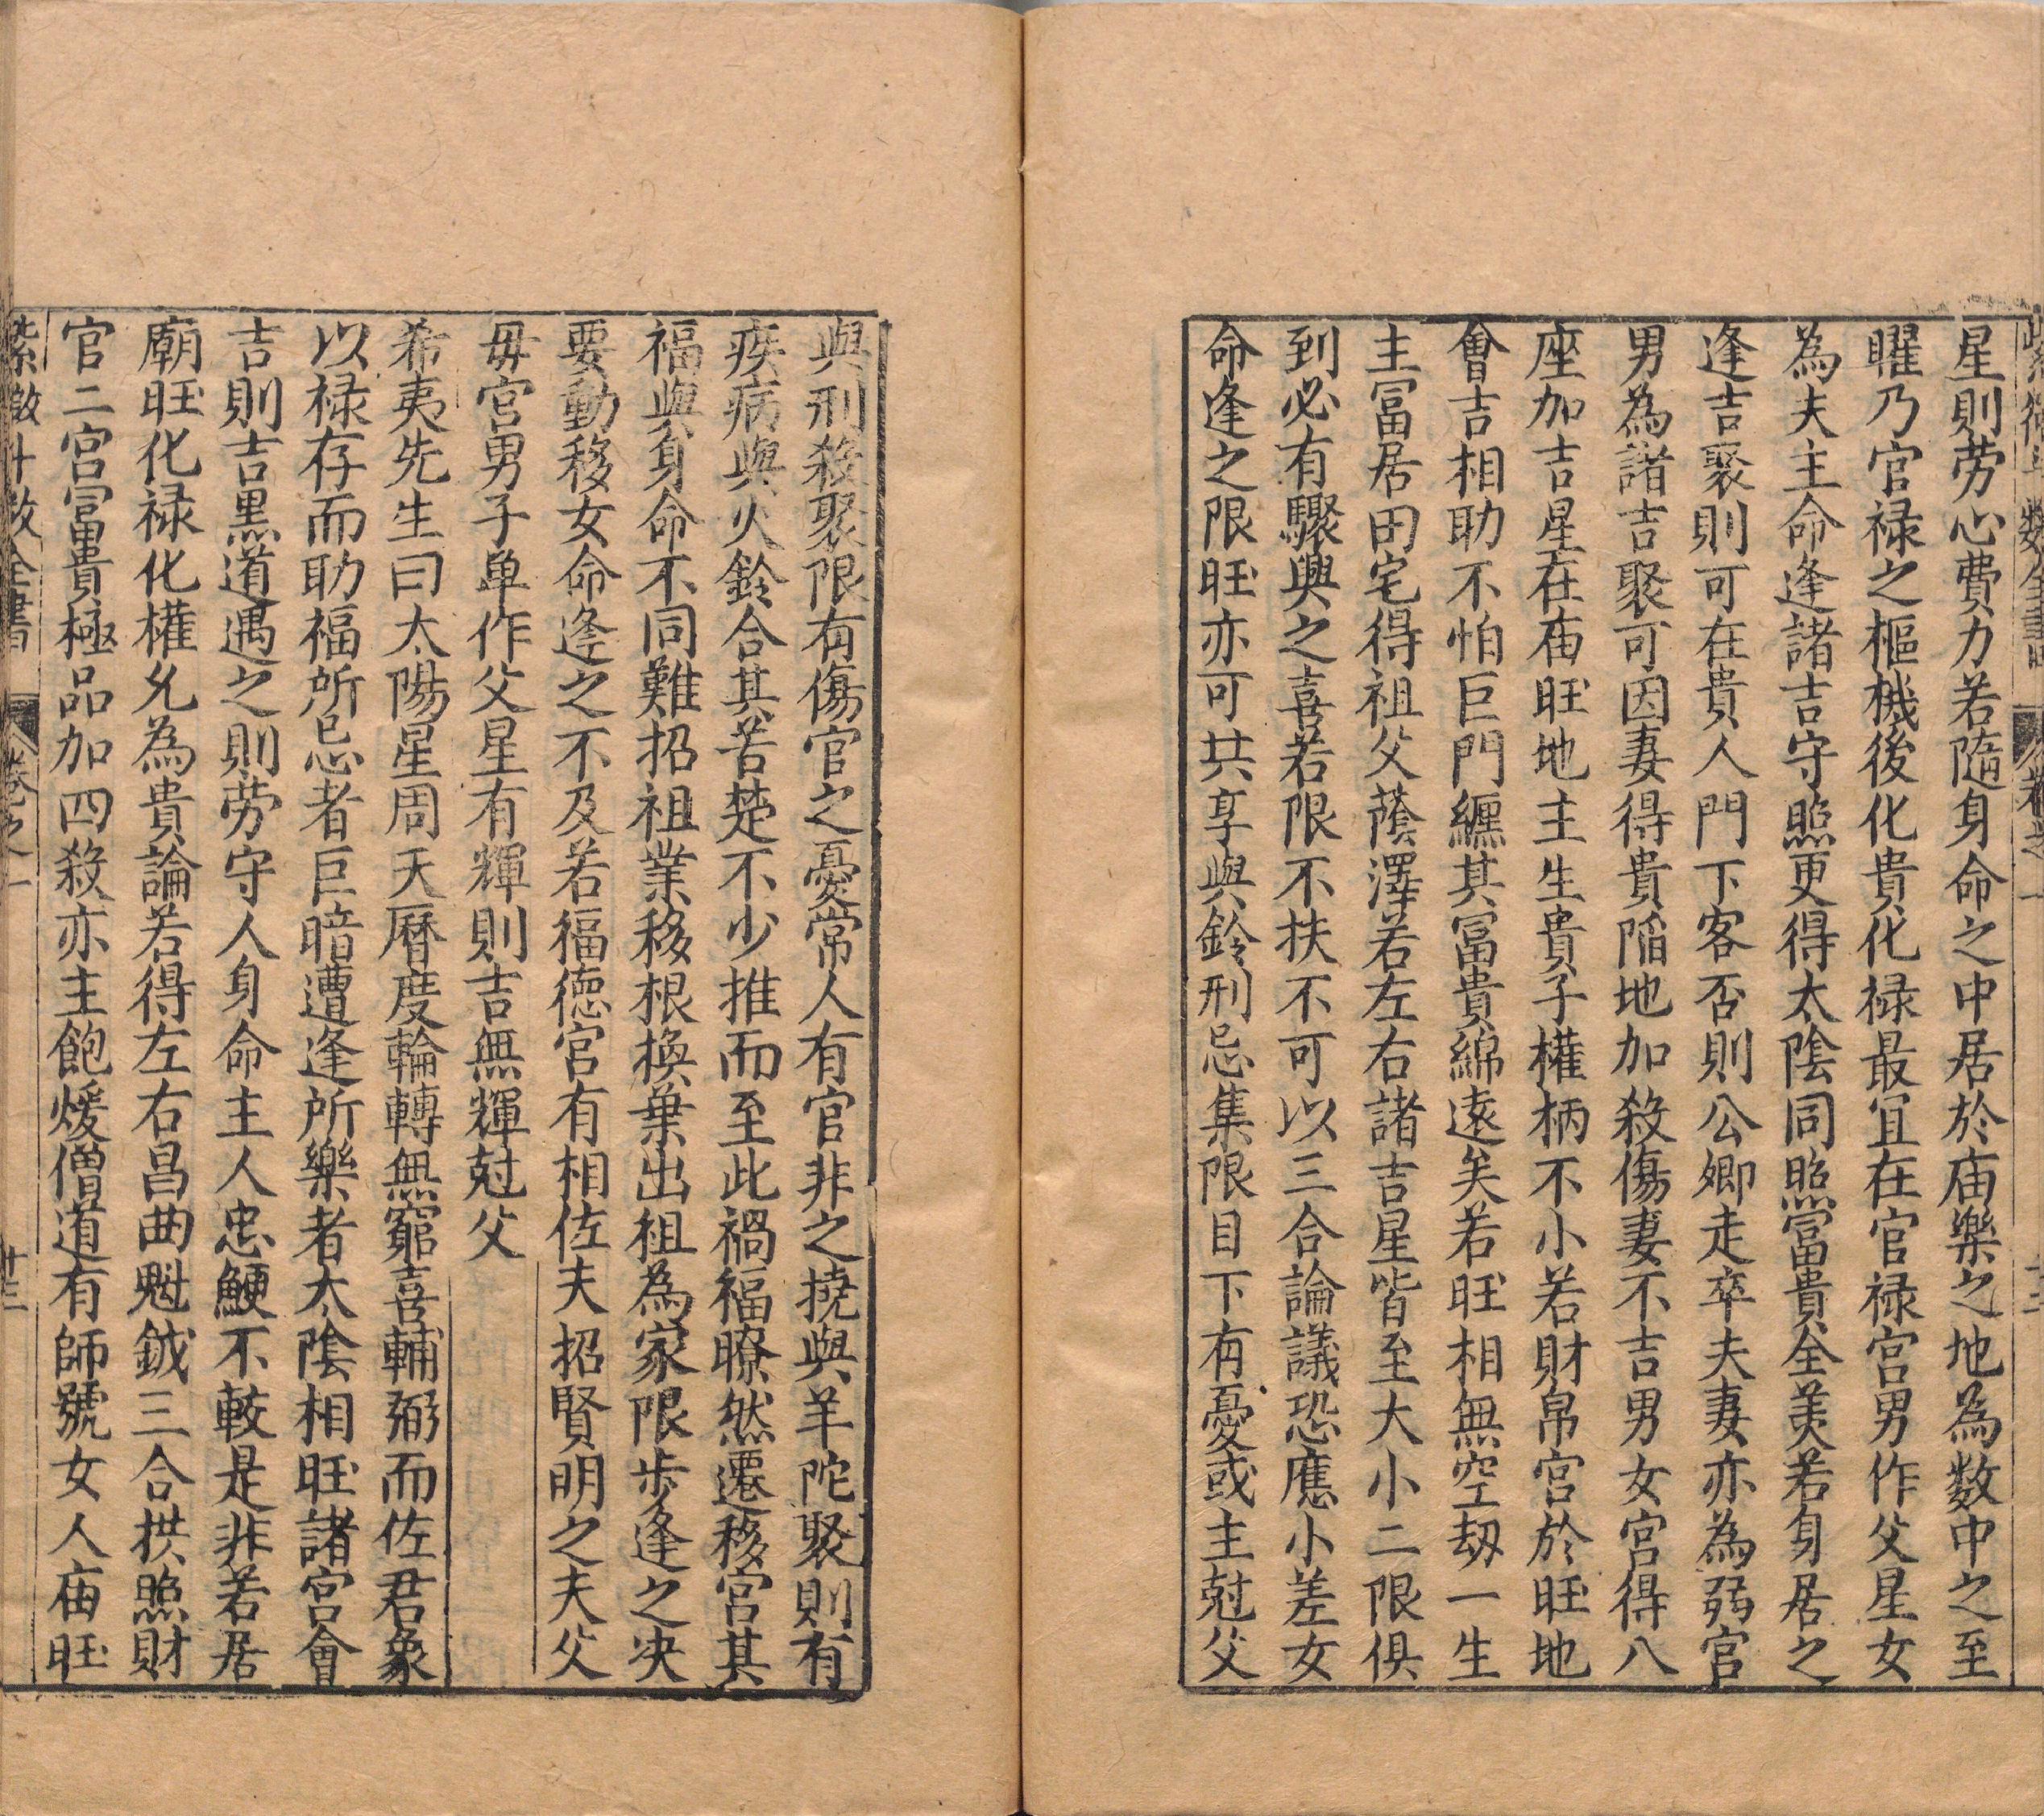 星則劳心費力若隨身命之中居於庙樂之地為数中之至
曜乃官禄之樞機後化貴化禄最宜在官禄宮男作父星女
為夫主命逢諸吉守照更得太陰同照富貴全美若身居之
逢吉聚則可在貴人門下客否則公卿走卒夫妻亦為弱宮
男為諸吉聚可因妻得貴陷地加殺傷妻不吉男女宮得八
座加吉星在庙旺地主生貴子權柄不小若財帛宮於旺地
會吉相助不怕巨門纒其冨貴綿遠矣若旺相無空刼一生
主冨居田宅得祖父蔭澤若左右諸吉星皆至大小二限俱
到必有驟興之喜若限不扶不可以三合論議恐應小差女
命逢之限旺亦可共享與鈴刑忌集限目下有憂或主尅父
與刑殺聚限有傷官之憂常人有官非之撓與羊陀聚則有
疾病與火鈴合其苦楚不少推而至此禍福瞭然遷移宮其
福與身命不同難招祖業移根換葉出祖為家限歩逢之决
要動移女命逢之不及若福德宮有相佐夫招賢明之夫父
毋宮男子单作父星有輝則吉無輝尅父
希夷先生曰太陽星周天曆度輪轉無窮喜輔弼而佐君象
以禄存而助福所忌者巨暗遭逢所樂者太陰相旺諸宮會
吉則吉黑道遇之則劳守人身命主人忠鯁不較是非若居
廟旺化禄化權允為貴論若得左右昌曲魁鉞三合拱照財
官二宮富貴極品加四殺亦主飽煖僧道有師號女人庙旺
紫微斗数全書 卷之一 十三